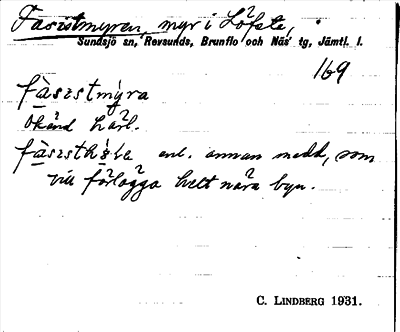 Fasistmyren, myr i Löfsta,
Sundsjö sn, Revsunds, Brunflo och Näs tg, Jämtl. l.
169
fàsıstmy̆ra
Okänd härl.
fàsısthò̤le enl. annan medd, som
vill förlägga helt nära byn.
C. LINDBERG 1931.